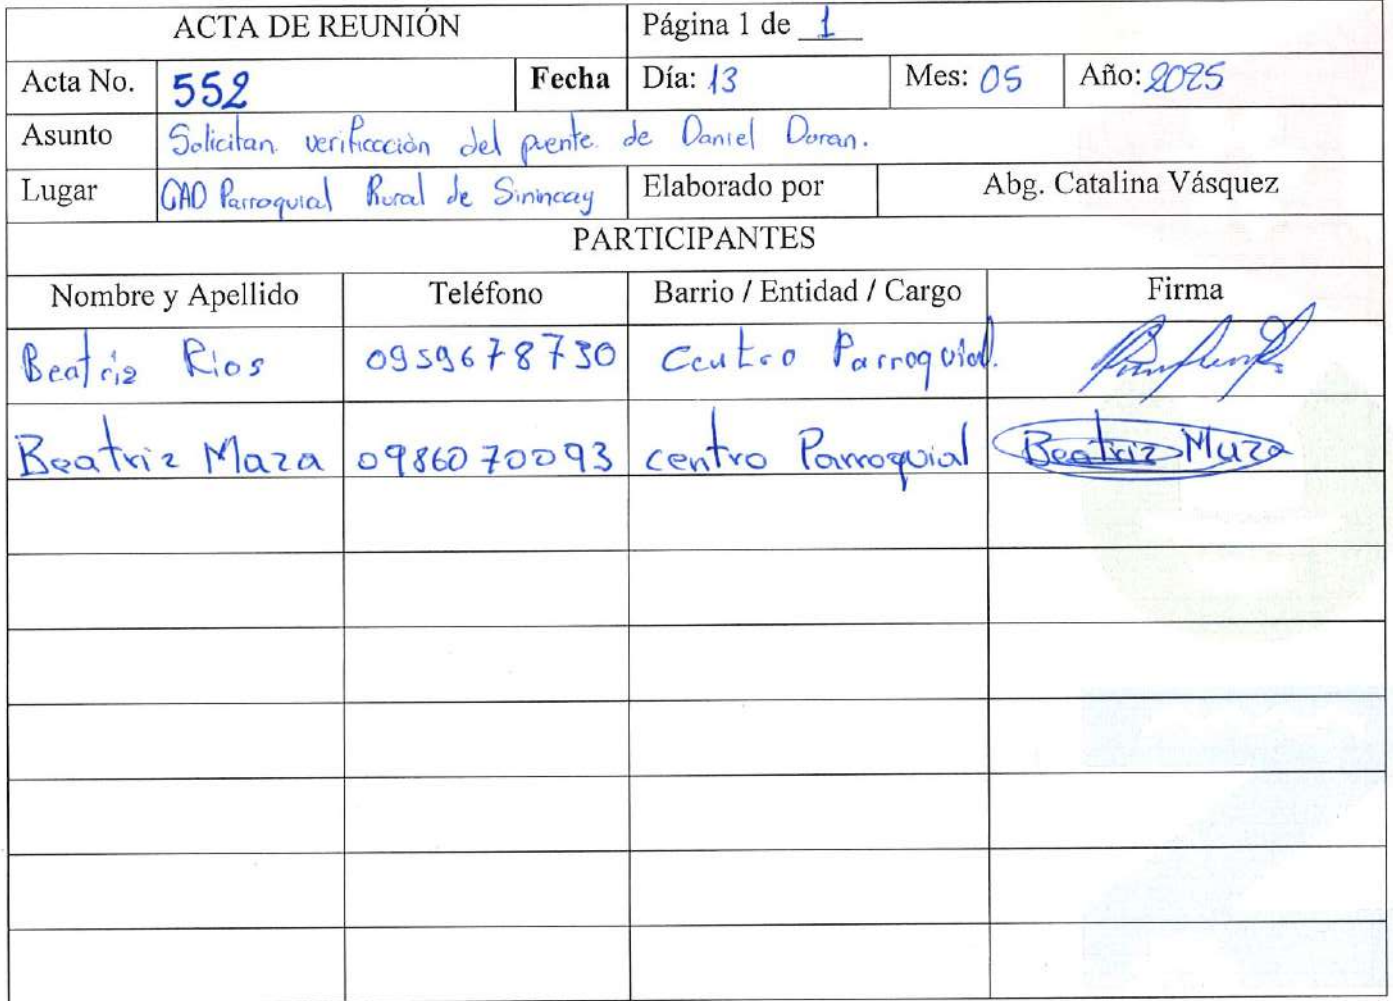 ACTA DE REUNIÓN Página 1 de 1
Acta No. 552 Fecha Día: 13 Mes: 05 Año: 2025
Asunto Solicitan verificación del puente de Daniel Duran.
Lugar GAD Parroquial Rural de Sinincay Elaborado por Abg. Catalina Vásquez
PARTICIPANTES
Nombre y Apellido Teléfono Barrio / Entidad / Cargo Firma
Beatriz Rios 0959678730 Centro Parroquial.
Beatriz Maza 0986070093 centro Parroquial Beatriz Maza